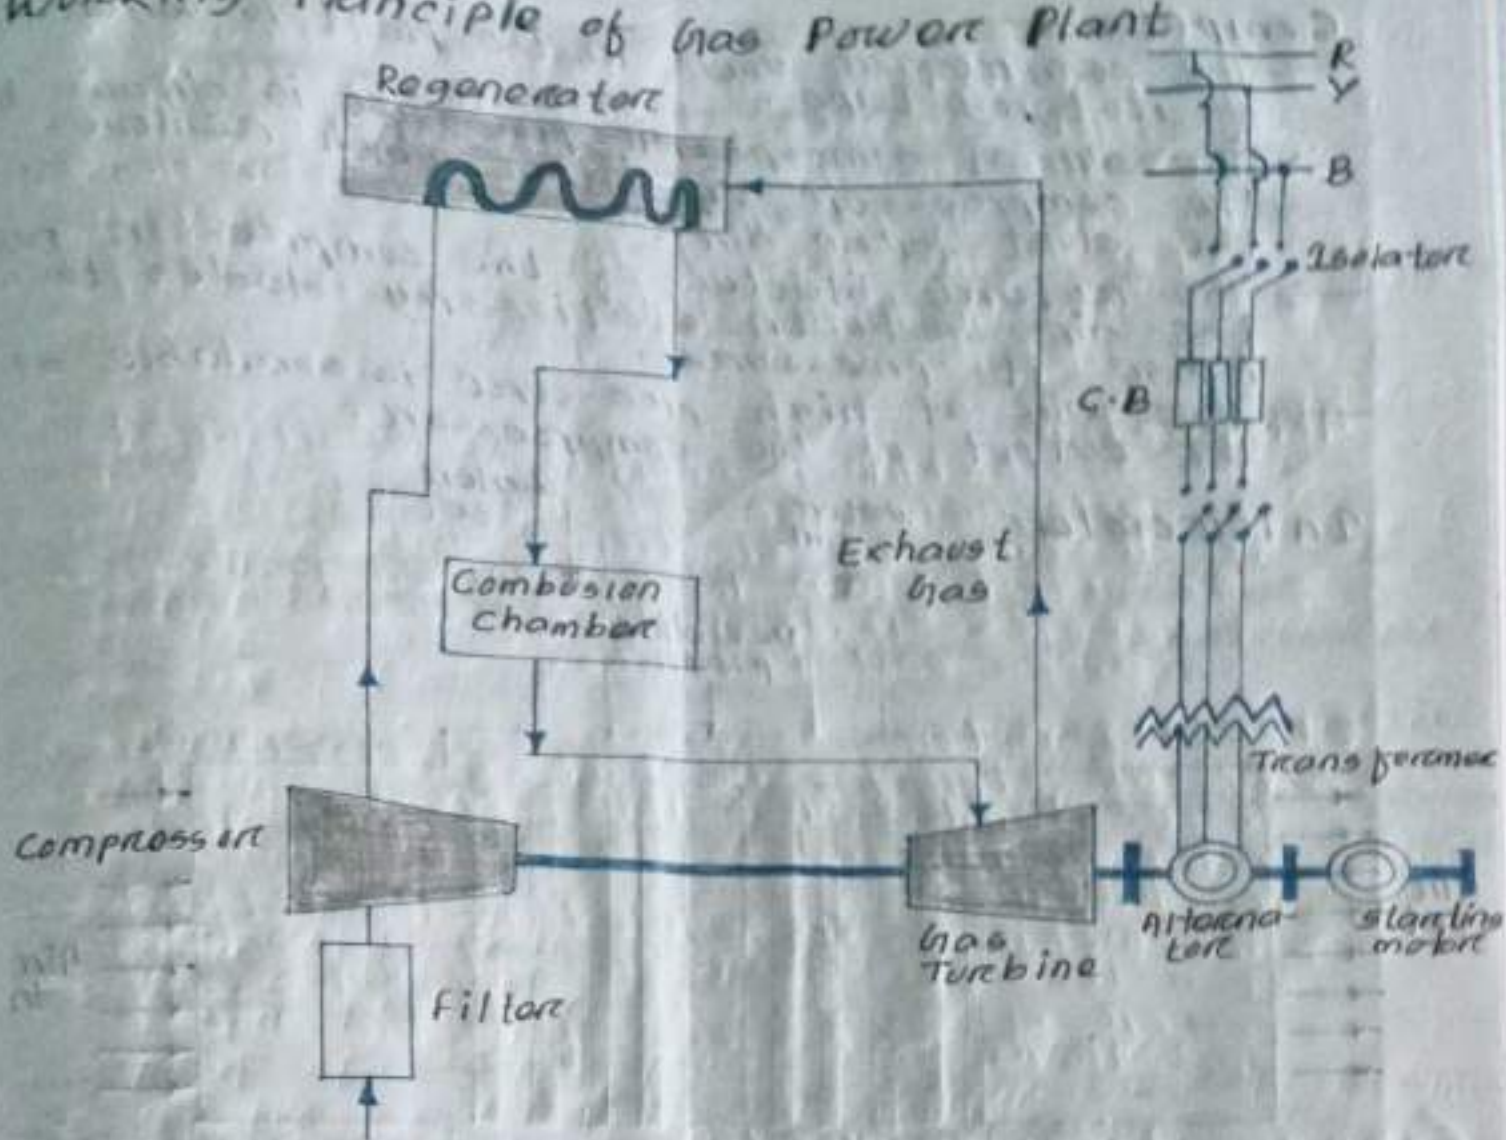 Working Principle of Gas Power Plant
Regenerator
R
Y
B
Isolator
C.B
Exhaust
Gas
Combusion
Chamber
Transformer
Compressor
Gas
Turbine
Alterna-
tor
Starting
motor
Filter